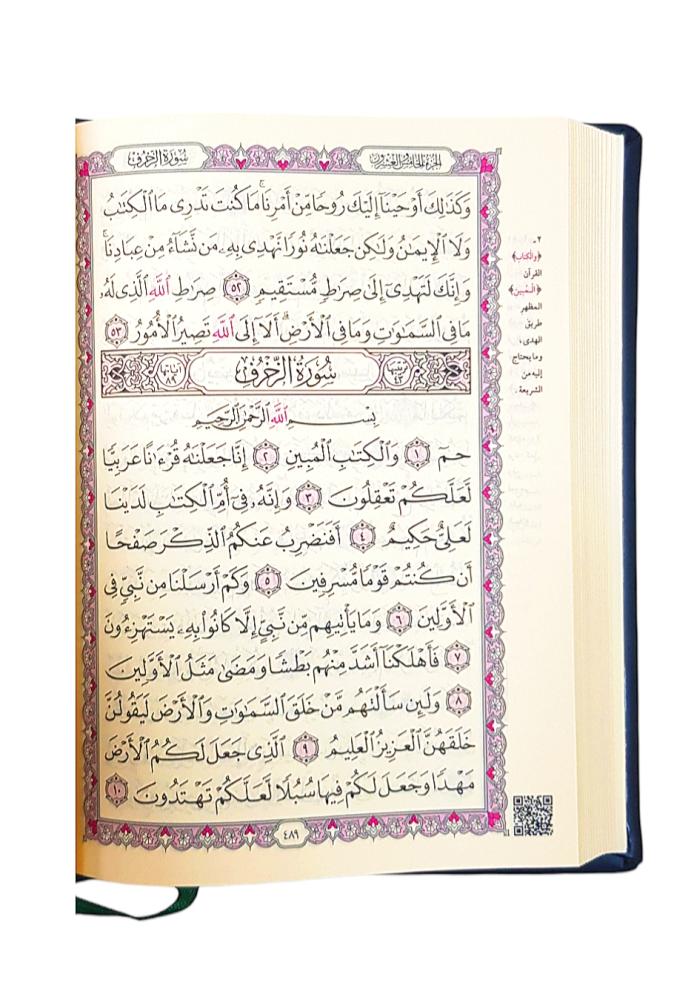 الجزء الخامس والعشرون
سورة الزخرف
وَكَذَٰلِكَ أَوْحَيْنَآ إِلَيْكَ رُوحًا مِّنْ أَمْرِنَا ۚ مَا كُنتَ تَدْرِى مَا ٱلْكِتَٰبُ
وَلَا ٱلْإِيمَٰنُ وَلَٰكِن جَعَلْنَٰهُ نُورًا نَّهْدِى بِهِۦ مَن نَّشَآءُ مِنْ عِبَادِنَا ۚ
وَإِنَّكَ لَتَهْدِىٓ إِلَىٰ صِرَٰطٍ مُّسْتَقِيمٍ ٥٢ صِرَٰطِ ٱللَّهِ ٱلَّذِى لَهُۥ
مَا فِى ٱلسَّمَٰوَٰتِ وَمَا فِى ٱلْأَرْضِ ۗ أَلَآ إِلَى ٱللَّهِ تَصِيرُ ٱلْأُمُورُ ٥٣
ترتيبها ٤٣ سُورَةُ الزُّخْرُفِ آياتها ٨٩
بِسْمِ ٱللَّهِ ٱلرَّحْمَٰنِ ٱلرَّحِيمِ
حمٓ ١ وَٱلْكِتَٰبِ ٱلْمُبِينِ ٢ إِنَّا جَعَلْنَٰهُ قُرْءَٰنًا عَرَبِيًّا
لَّعَلَّكُمْ تَعْقِلُونَ ٣ وَإِنَّهُۥ فِىٓ أُمِّ ٱلْكِتَٰبِ لَدَيْنَا
لَعَلِىٌّ حَكِيمٌ ٤ أَفَنَضْرِبُ عَنكُمُ ٱلذِّكْرَ صَفْحًا
أَن كُنتُمْ قَوْمًا مُّسْرِفِينَ ٥ وَكَمْ أَرْسَلْنَا مِن نَّبِىٍّ فِى
ٱلْأَوَّلِينَ ٦ وَمَا يَأْتِيهِم مِّن نَّبِىٍّ إِلَّا كَانُوا۟ بِهِۦ يَسْتَهْزِءُونَ
٧ فَأَهْلَكْنَآ أَشَدَّ مِنْهُم بَطْشًا وَمَضَىٰ مَثَلُ ٱلْأَوَّلِينَ
٨ وَلَئِن سَأَلْتَهُم مَّنْ خَلَقَ ٱلسَّمَٰوَٰتِ وَٱلْأَرْضَ لَيَقُولُنَّ
خَلَقَهُنَّ ٱلْعَزِيزُ ٱلْعَلِيمُ ٩ ٱلَّذِى جَعَلَ لَكُمُ ٱلْأَرْضَ
مَهْدًا وَجَعَلَ لَكُمْ فِيهَا سُبُلًا لَّعَلَّكُمْ تَهْتَدُونَ ١٠
٤٨٩
٢-
﴿والكتاب﴾
القرآن
﴿المبين﴾
المظهر
طريق
الهدى،
وما يحتاج
إليه من
الشريعة.